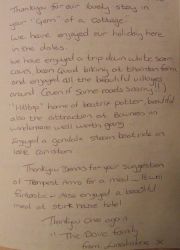 Thankyou for our lovely stay in
your "Gem" of a cottage.
We have enjoyed our holiday here
in the dales.
We have enjoyed a trip down white scar
caves, been good hiking at thornton force
and enjoyed all the beautiful villages
around. (Even if some roads scary!!)
'Hilltop' home of beatrix potter, beautiful
also the attraction at Bowness on
windermere well worth going.
Enjoyed a gondola steam boat ride on
lake coniston.
Thankyou Dennis for your suggestion
of Tempest Arms for a meal - was
fantastic - Also enjoyed a beautiful
meal at stirk house hotel!
Thankyou once again
"The Dove family
from Lincolnshire x